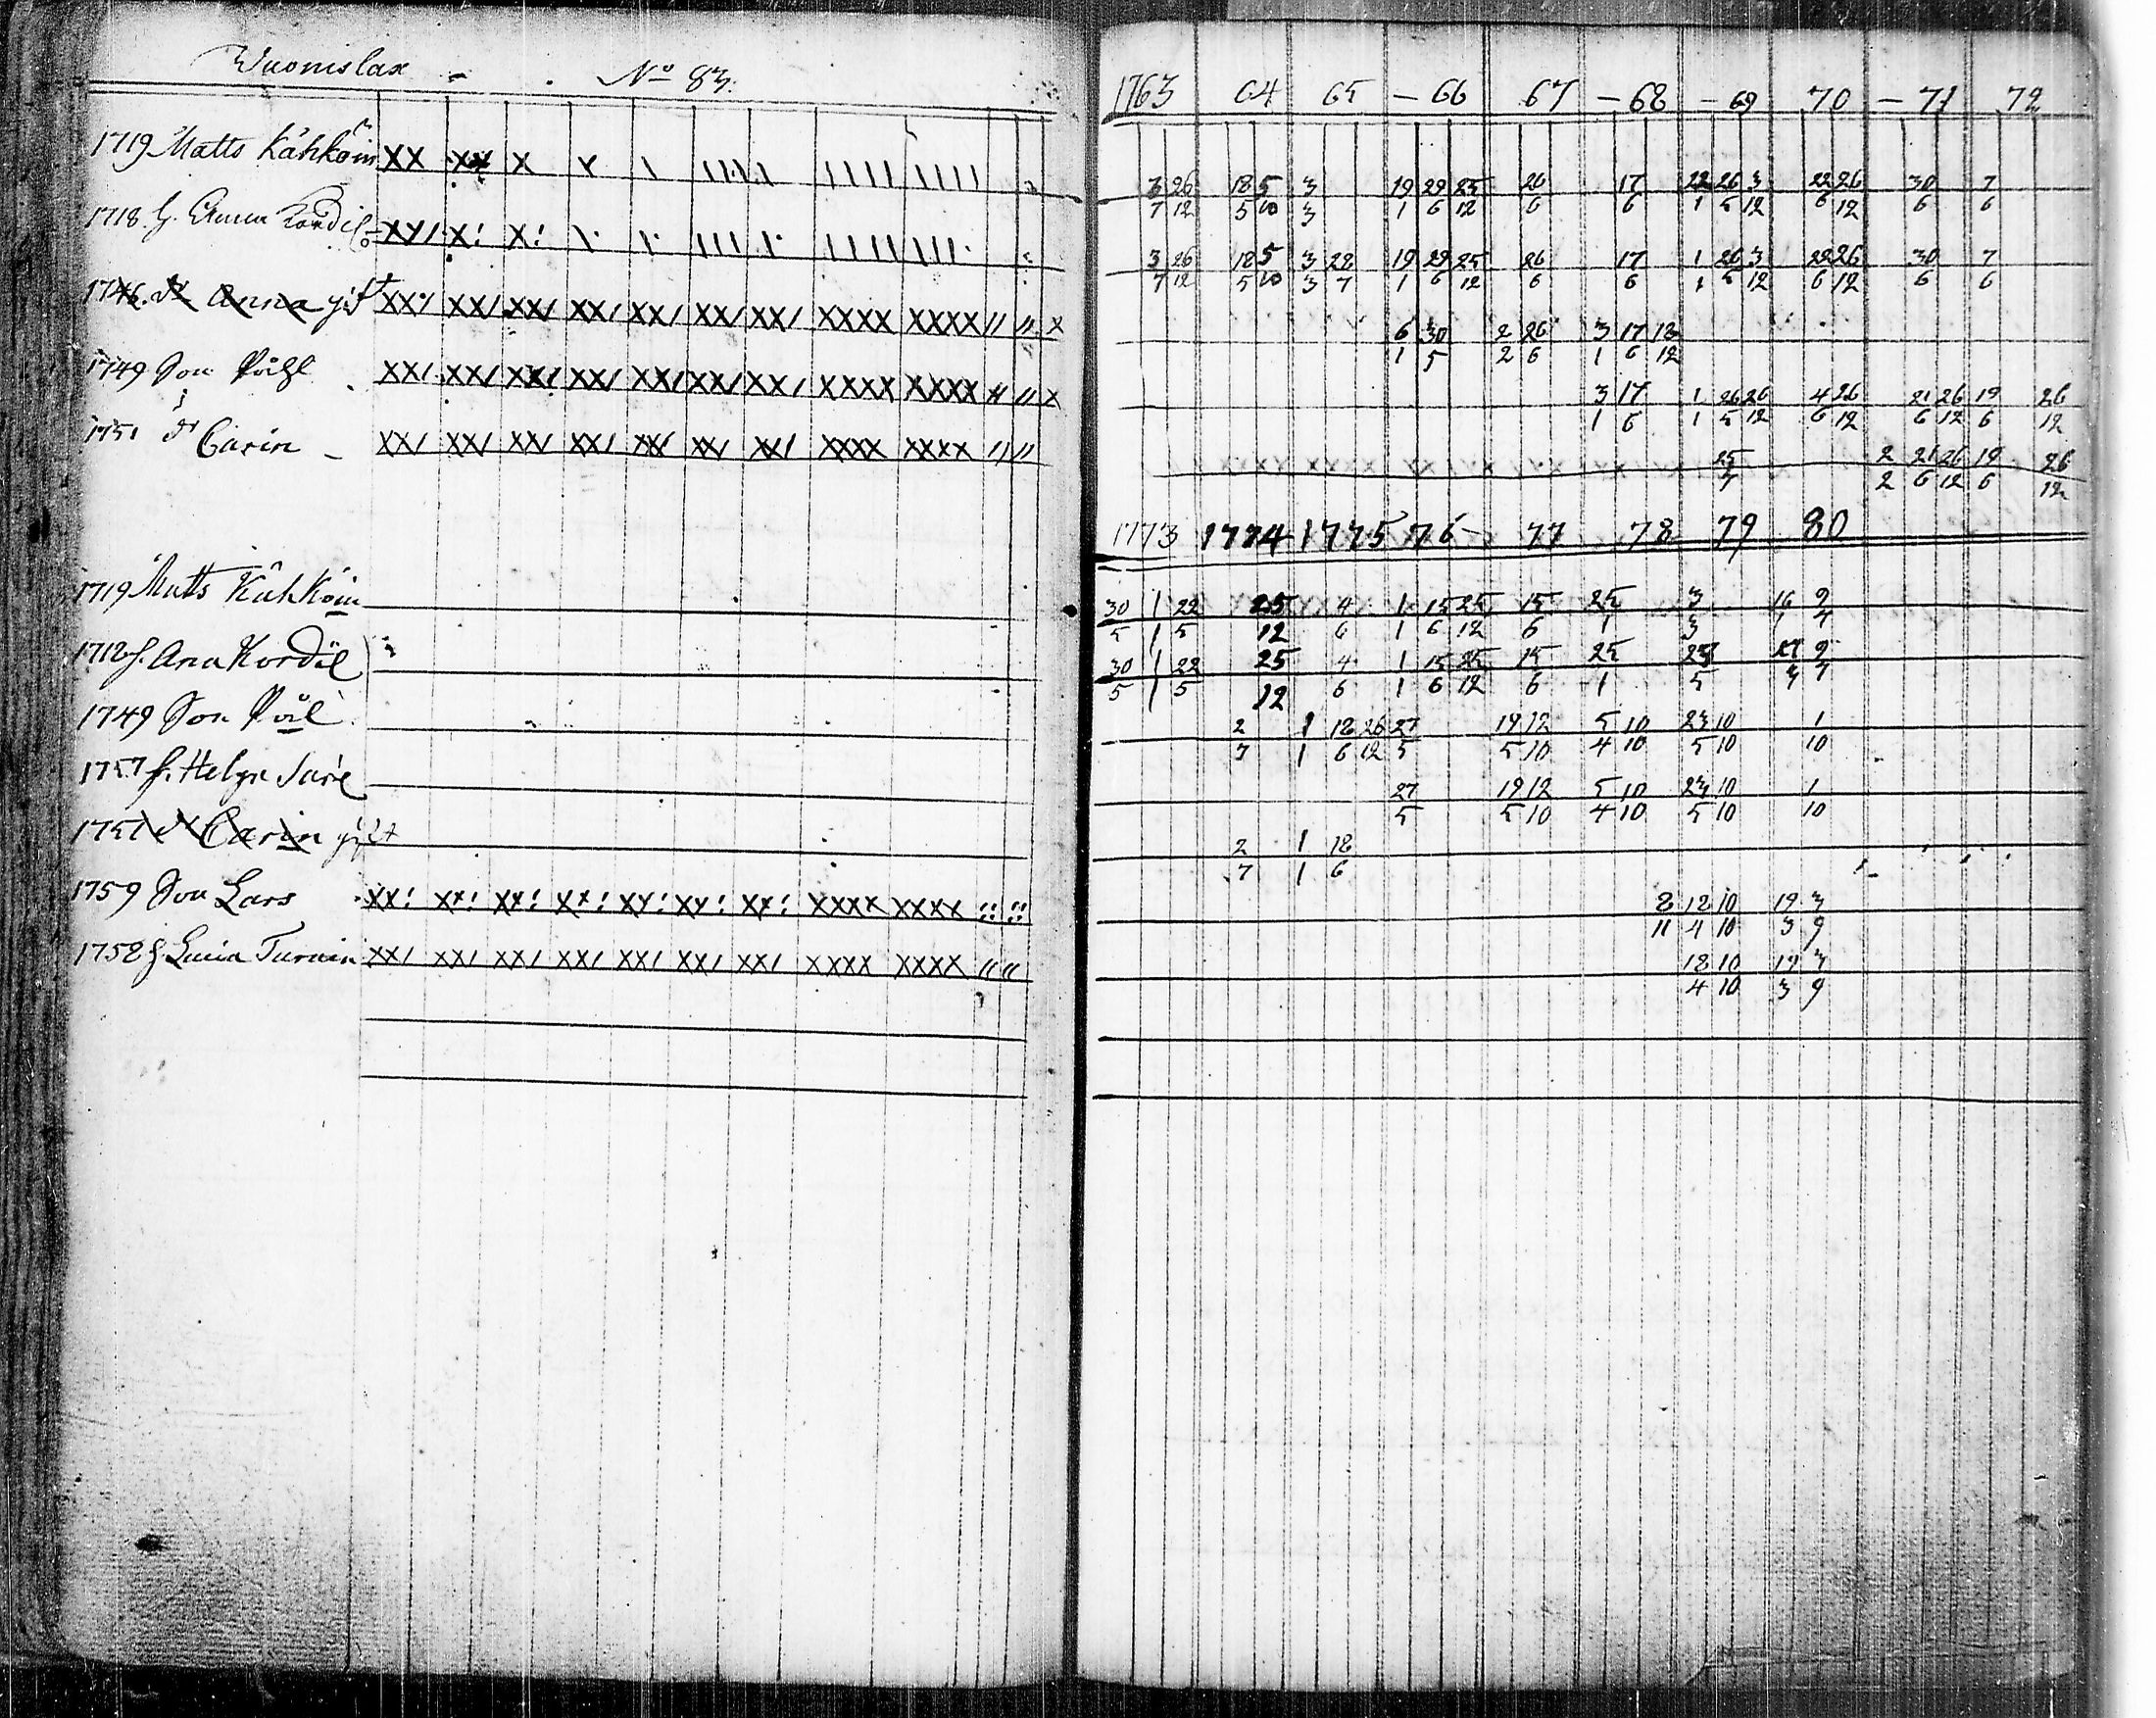 Wuonislax - . No 83.
1719 Matts Kåhkoin XX XX X
1718. h. Anna Kordil XX X X
1746. dr Anna gift XX/ XX/ XX/ XX/ XX/ XX/ XX/ XXXX XXXX // // X
1749 Son Påhl XX/ XX/ XX/ XX/ XX/ XX/ XX/ XXXX XXXX // // X
1751 dr Carin XX/ XX/ XX/ XX/ XX/ XX/ XX/ XXXX XXXX // //
1719 Matts Kåhkoin
1718 h. Ana Kordil
1749 Son Pål
1757 h. Helga
1751 dr Carin gift
1759 Son Lars XX: XX: XX: XX: XX: XX: XX: XXXX XXXX :: ::
1758 h. Lucia Turuin XX/ XX/ XX/ XX/ XX/ XX/ XX/ XXXX XXXX // //
1763 64 65 - 66 67 - 68 - 69 70 - 71 72
3 26 18 5 3 19 29 25 26 17 22 26 3 22 26 30 7
7 12 5 10 3 1 6 12 6 6 1 5 12 6 12 6 6
3 26 18 5 3 28 19 29 25 26 17 1 26 3 22 26 30 7
7 12 5 10 3 7 1 6 12 6 6 1 5 12 6 12 6 6
6 30 2 26 3 17 18
1 5 2 6 1 6 12
3 17 1 26 26 4 26 21 26 19 26
1 6 1 5 12 6 12 6 12 6 12
25 2 21 26 19 26
7 2 6 12 6 12
1773 1774 1775 76 - 77 78 79 80
30 1 22 25 4 1 15 25 15 25 3 16 9
5 1 5 12 6 1 6 12 6 1 3 1 4
30 1 22 25 4 1 15 25 15 25 25 27 9
5 1 5 12 6 1 6 12 6 1 5 7
2 1 18 26 27 19 12 5 10 23 10 1
7 1 6 12 5 5 10 4 10 5 10 10
27 19 12 5 10 23 10 1
5 5 10 4 10 5 10 10
2 1 18
7 1 6
8 18 10 19 3
11 4 10 3 9
18 10 19 3
4 10 3 9